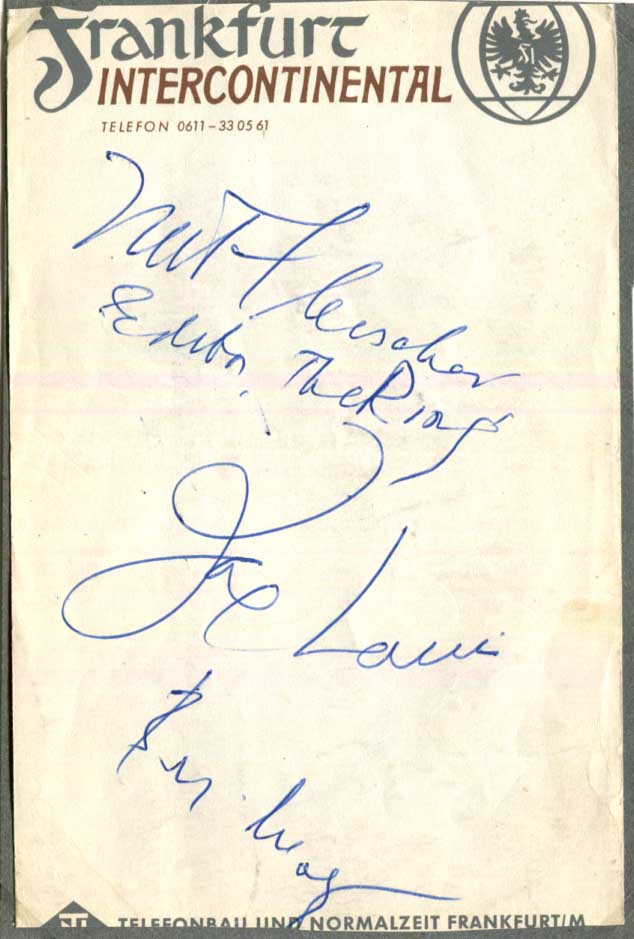 Frankfurt
INTERCONTINENTAL
TELEFON 0611-33 05 61
Nat Fleischer
Editor, The Ring
Joe Louis
TN TELEFONBAU UND NORMALZEIT FRANKFURT/M